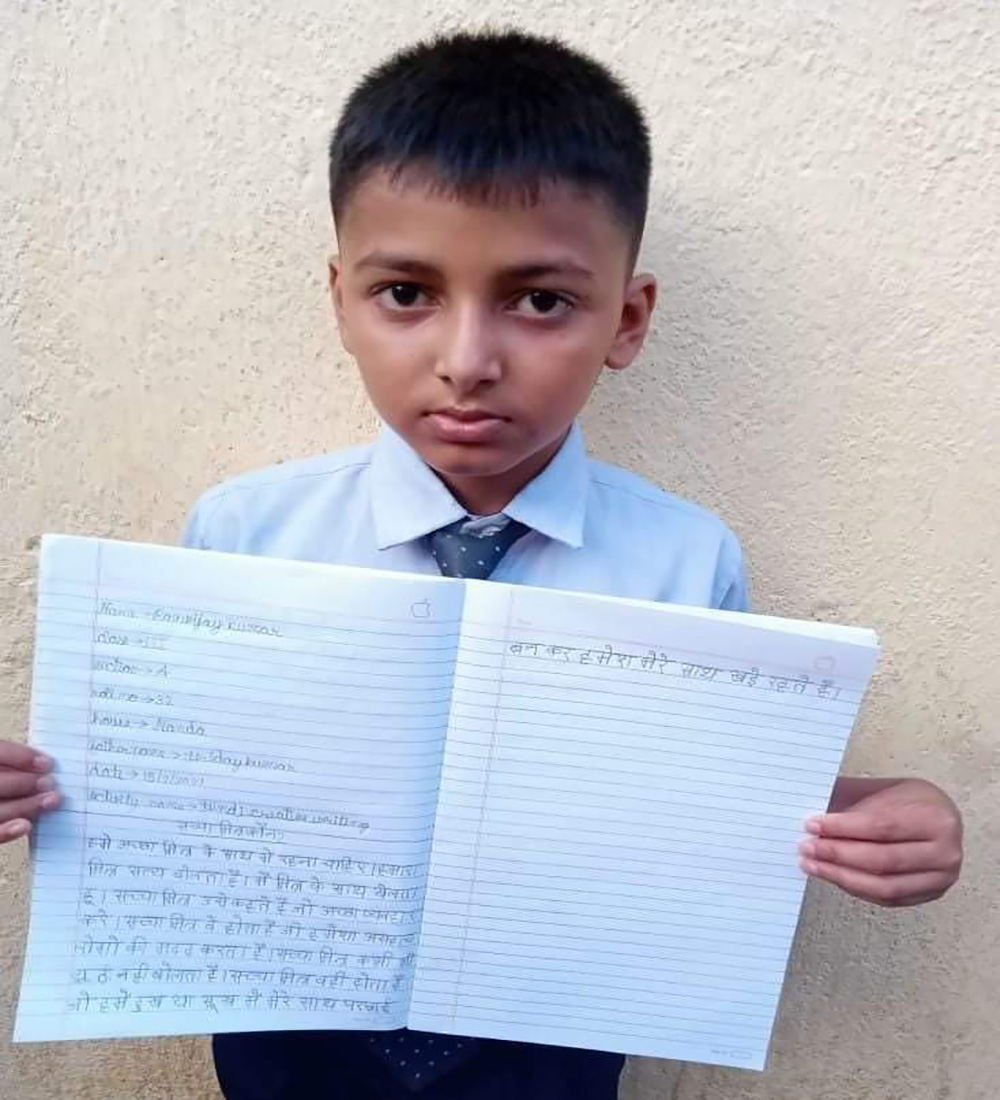 Name → Ramvijay kumar
class → III
section → A
roll no → 32
house → Narda
father name → Mr. Uday kumar
date → 15/5/2021
activity name → Hindi creative writing
सच्चा मित्र कौन?
हमे अच्छा मित्र के साथ मे रहना चाहिए। हमारा
मित्र सत्य बोलता है। मैं मित्र के साथ खेलता
हूँ। सच्चा मित्र उसे कहते हैं जो अच्छा व्यवहार
करे। सच्चा मित्र वे होता हैं जो हमेशा असहाय
लोगो की मदद करता हैं। सच्चा मित्र कभी भी
झूठ नही बोलता हैं। सच्चा मित्र वही होता हैं
जो हमे दुख या सूख मे मेरे साथ परछाई
बन कर हमेशा मेरे साथ खड़े रहते हैं।